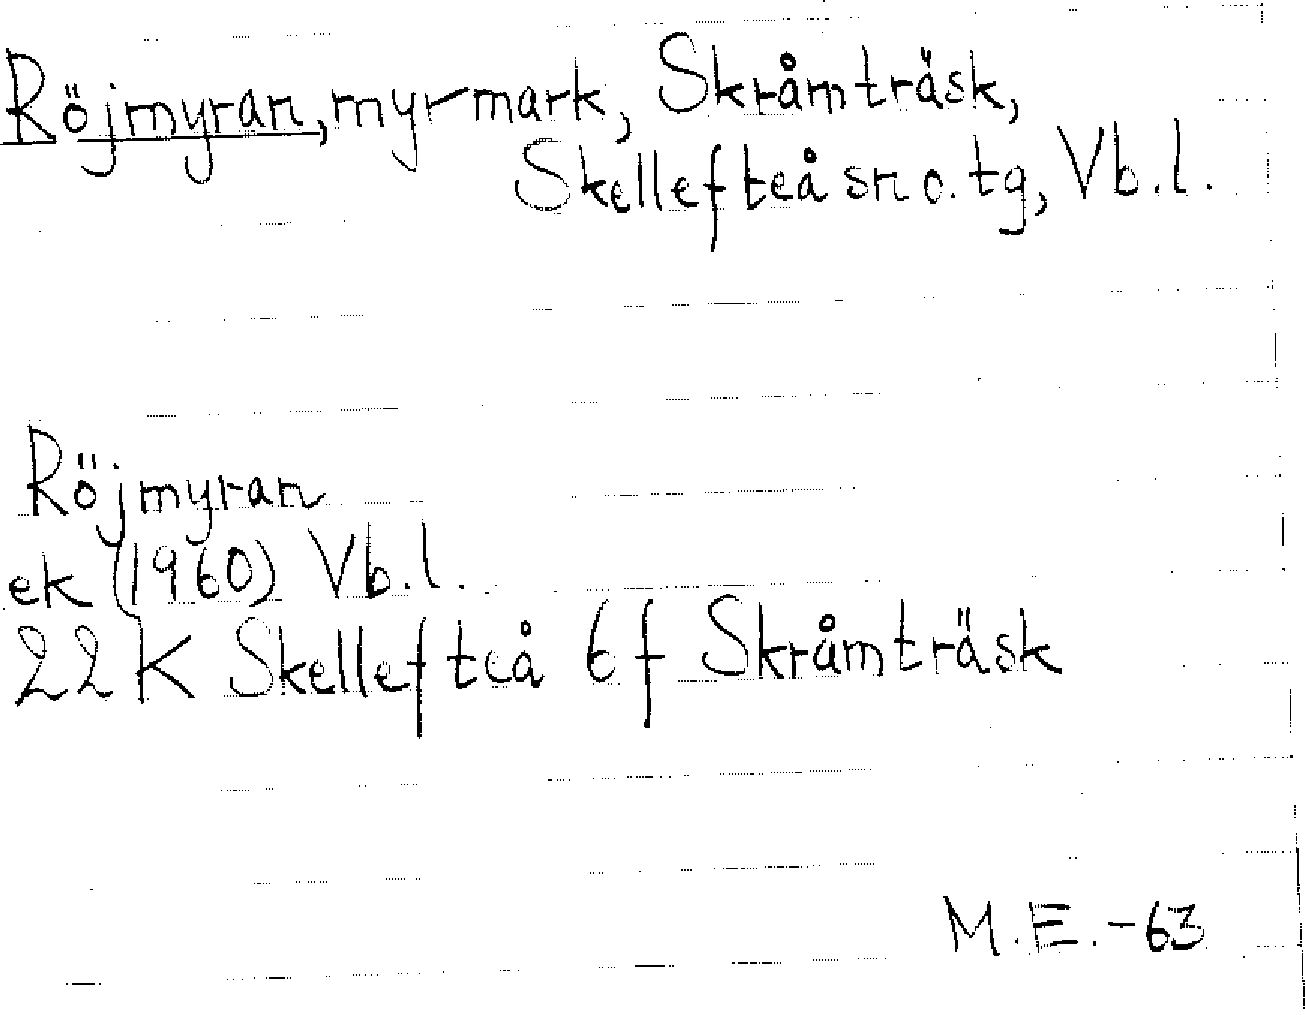 Röjmyran, myrmark, Skråmträsk,
Skellefteå sn o. tg, Vb.l.
Röjmyran
ek (1960) Vb.l.
22 K Skellefteå 6 f Skråmträsk
M.E.-63